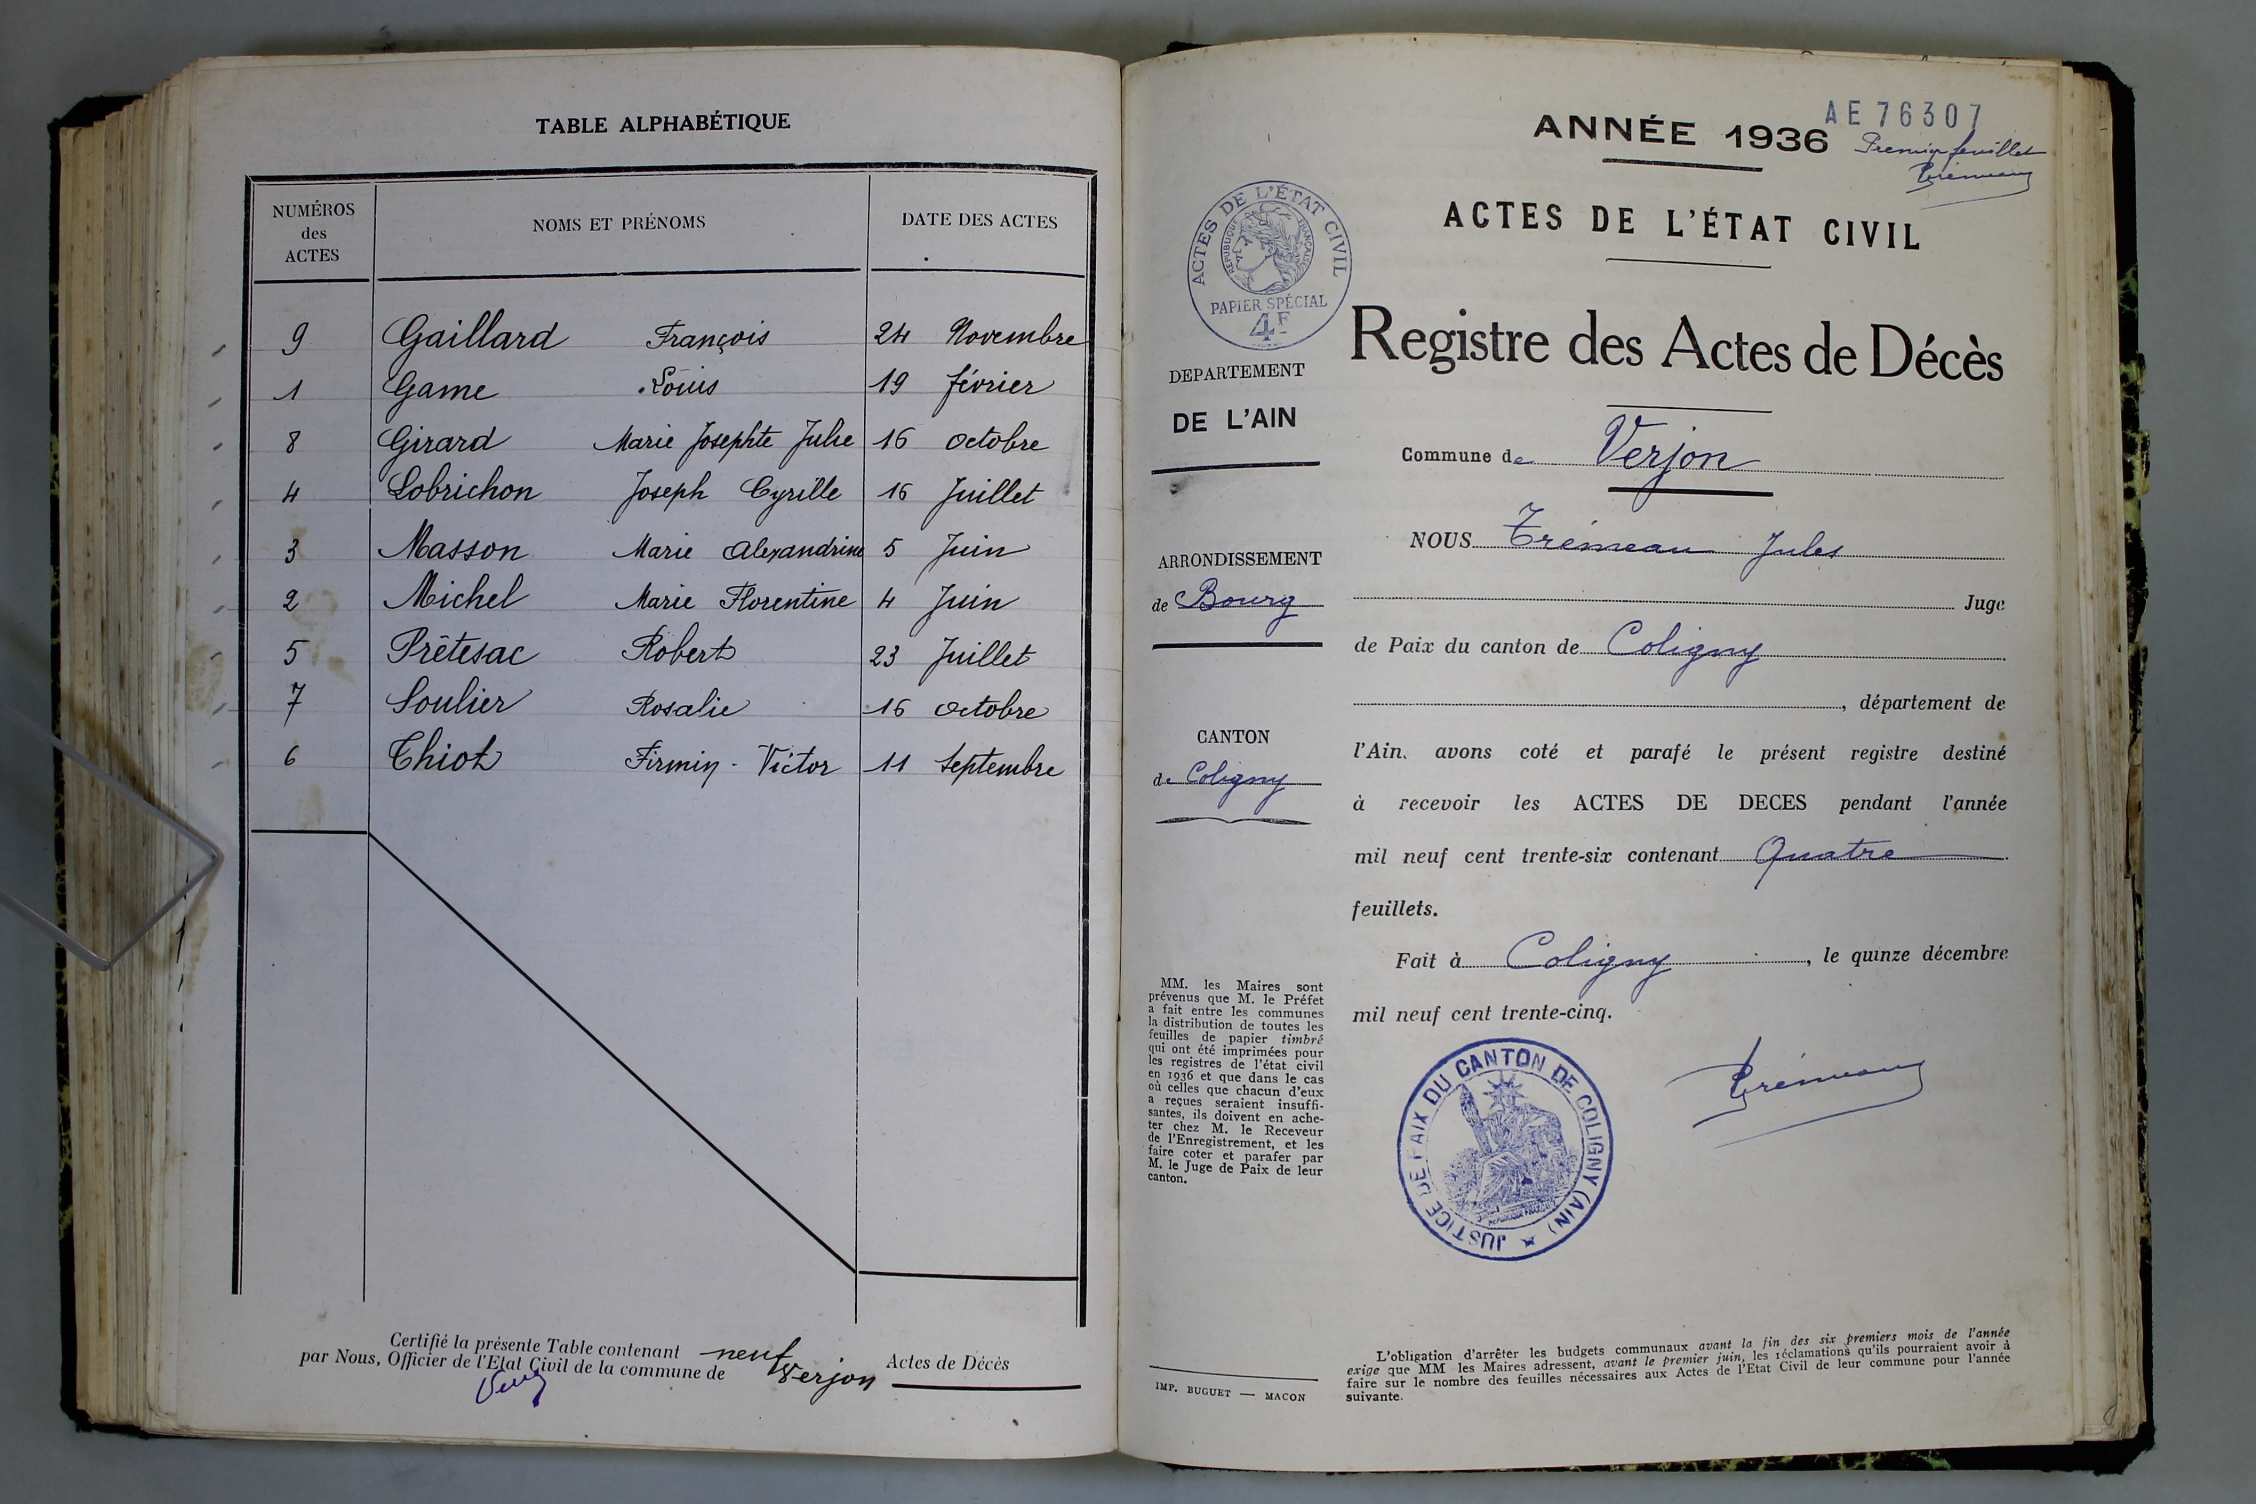 TABLE ALPHABÉTIQUE
NUMÉROS
des
ACTES
NOMS ET PRÉNOMS
DATE DES ACTES
9 Gaillard François 24 Novembre
1 Game Louis 19 février
8 Girard Marie Josephte Julie 16 octobre
4 Lobrichon Joseph Cyrille 16 Juillet
3 Masson Marie Alexandrine 5 Juin
2 Michel Marie Florentine 4 Juin
5 Prêtesac Robert 23 Juillet
7 Soulier Rosalie 16 octobre
6 Thiot Firmin - Victor 11 septembre
Certifié la présente Table contenant neuf Actes de Décès
par Nous, Officier de l'Etat Civil de la commune de Verjon
AE 76307
ANNÉE 1936
Premier feuillet
Trémeau
ACTES DE L'ÉTAT CIVIL
ACTES DE L'ÉTAT CIVIL
RÉPUBLIQUE FRANÇAISE
PAPIER SPÉCIAL
4F
Registre des Actes de Décès
DEPARTEMENT
DE L'AIN
Commune de Verjon
NOUS Trémeau Jules
ARRONDISSEMENT
de Bourg
Juge
de Paix du canton de Coligny
, département de
CANTON
de Coligny
l'Ain, avons coté et parafé le présent registre destiné
à recevoir les ACTES DE DECES pendant l'année
mil neuf cent trente-six contenant Quatre
feuillets.
Fait à Coligny, le quinze décembre
mil neuf cent trente-cinq.
MM. les Maires sont
prévenus que M. le Préfet
a fait entre les communes
la distribution de toutes les
feuilles de papier timbré
qui ont été imprimées pour
les registres de l'état civil
en 1936 et que dans le cas
où celles que chacun d'eux
a reçues seraient insuffi-
santes, ils doivent en ache-
ter chez M. le Receveur
de l'Enregistrement, et les
faire coter et parafer par
M. le Juge de Paix de leur
canton.
JUSTICE DE PAIX DU CANTON DE COLIGNY (AIN)
Trémeau
IMP. BUGUET — MACON
L'obligation d'arrêter les budgets communaux avant la fin des six premiers mois de l'année
exige que MM les Maires adressent, avant le premier juin, les réclamations qu'ils pourraient avoir à
faire sur le nombre des feuilles nécessaires aux Actes de l'Etat Civil de leur commune pour l'année
suivante.